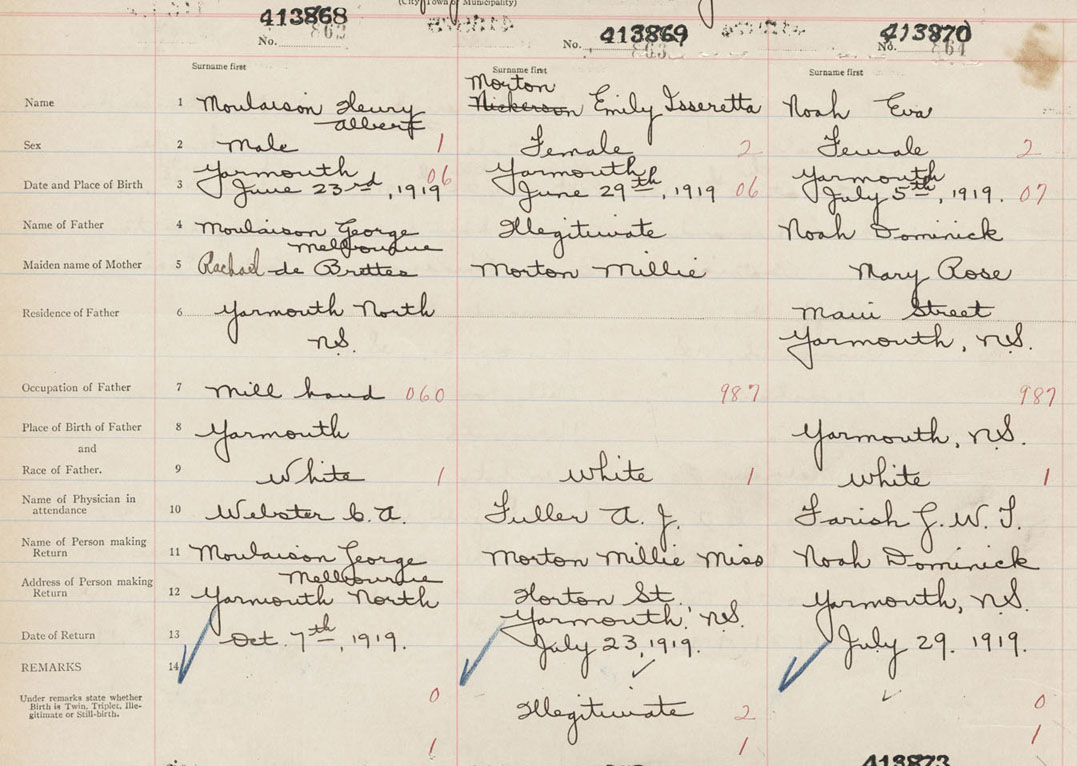 (City Town or Municipality)
413868 413869 413870
No. 862 No. 863 No. 864
Surname first Surname first Surname first
Morton
Name 1 Moulaison Henry Nickerson Emily Isseretta Noah Eva
Albert
Sex 2 Male 1 Female 2 Female 2
Yarmouth 06 Yarmouth Yarmouth
Date and Place of Birth 3 June 23rd, 1919 June 29th, 1919 06 July 5th, 1919. 07
Name of Father 4 Moulaison George Illegitimate Noah Dominick
Melbourne
Maiden name of Mother 5 Rachael de Brettes Morton Millie Mary Rose
Residence of Father 6 Yarmouth North Main Street
N.S. Yarmouth, N.S.
Occupation of Father 7 Mill hand 060 987 987
Place of Birth of Father 8 Yarmouth Yarmouth, N.S.
and
Race of Father. 9 White 1 White 1 White 1
Name of Physician in
attendance 10 Webster C. A. Fuller A. J. Farish G. W. T.
Name of Person making
Return 11 Moulaison George Morton Millie Miss Noah Dominick
Melbourne
Address of Person making
Return 12 Yarmouth North Horton St. Yarmouth, N.S.
Yarmouth, N.S.
Date of Return 13 Oct. 7th, 1919. July 23, 1919. July 29. 1919.
REMARKS 14
Under remarks state whether
Birth is Twin, Triplet, Ille-
gitimate or Still-birth.
0 Illegitimate 2 0
1 1 1
413873